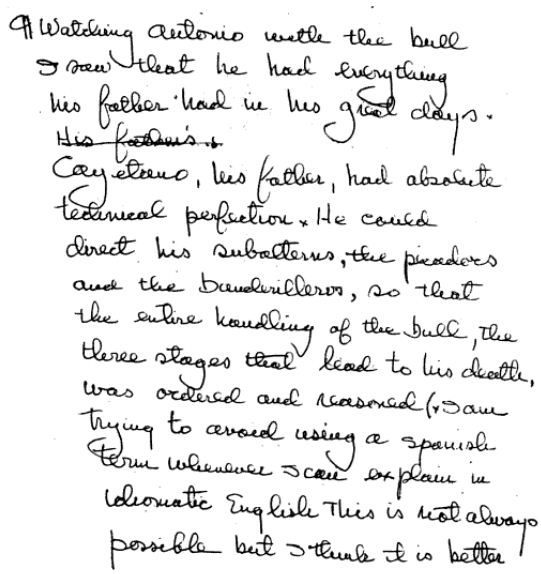 ¶ Watching Antonio with the bull
I saw that he had everything
his father had in his great days.
His father's
Cayetano, his father, had absolute
technical perfection. He could
direct his subalterns, the picadors
and the banderilleros, so that
the entire handling of the bull, the
three stages that lead to his death,
was ordered and reasoned (I am
trying to avoid using a spanish
term whenever I can explain in
idiomatic English This is not always
possible but I think it is better